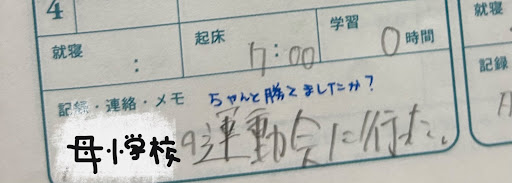 4
就寝
:
起床
17:00
学習
0時間
就寝
記録・連絡・メモ
ちゃんと勝てましたか?
記録
母小学校の運動会に行た。